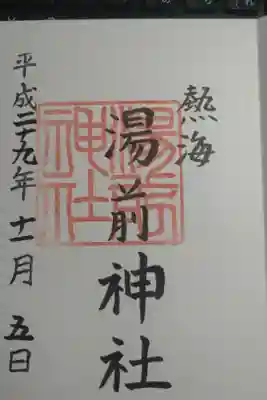 熱海
湯前神社
平成二十九年十一月五日
湯前
神社